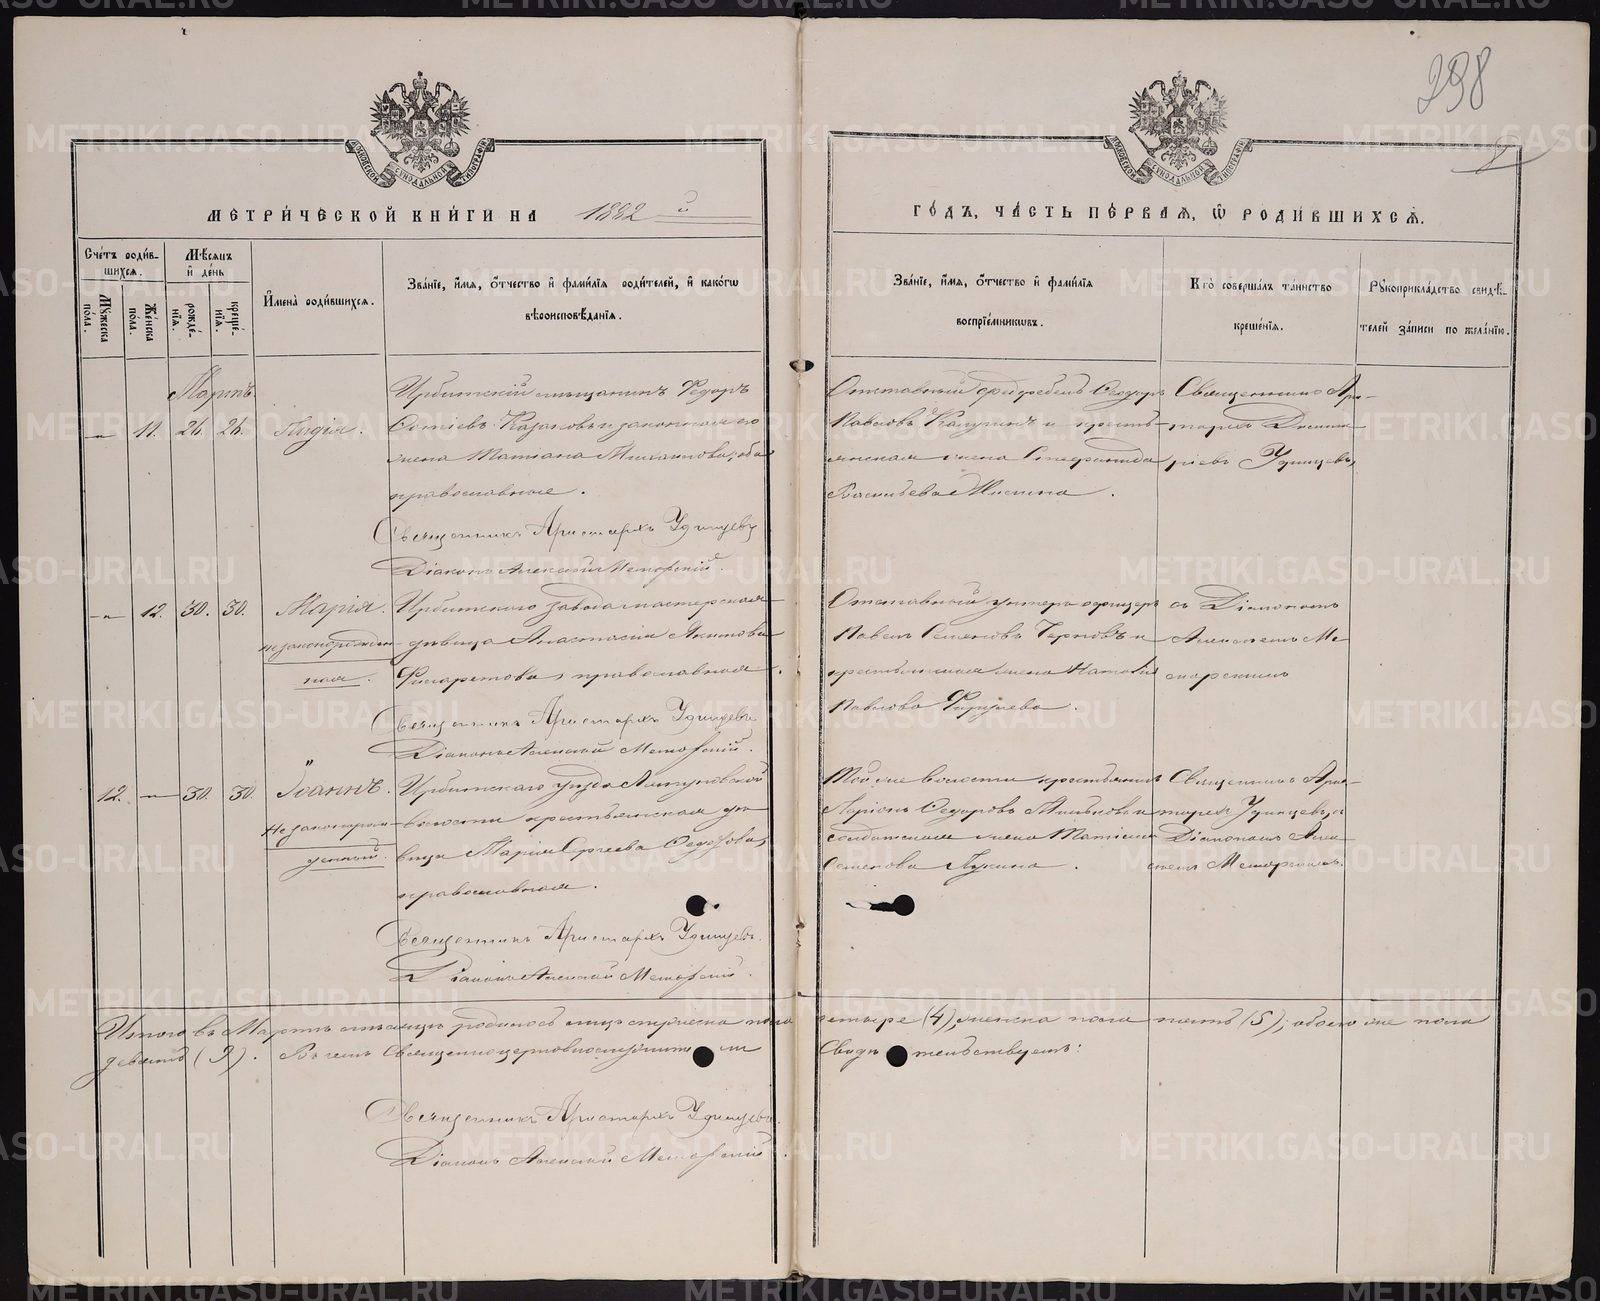 298
МЕТРИЧЕСКОЙ КНИГИ НА 1882 й
ГОДЪ, ЧАСТЬ ПЕРВАЯ, Ѿ РОДИВШИХСЯ.
Счетъ родив-
шихся.
Мѣсяцъ
и день
Мужеска
пола.
Женска
пола.
рожде-
нїя.
креще-
нїя.
Имена родившихся.
Званїе, имя, отчество и фамилїя родителей, и какогѡ
вѣроисповѣданїя.
Званїе, имя, отчество и фамилїя
воспрїемникѡвъ.
Кто совершалъ таинство
крещенїя.
Рукоприкладство свидѣ-
телей записи по желанїю.
Мартъ.
11. 26. 26. Лидія.
Ирбитскій мѣщанинъ Ѳедоръ
Казаковъ и законная его
жена Татіана Михаилова, оба
православные.
Священникъ Аристархъ Удинцевъ
Діаконъ Алексій Меморскій.
Отставный фельдфебель Ѳеодоръ
Павловъ Калугинъ и кресть-
янская жена Стефанида
Васильева
Священникъ Ари-
стархъ Димит-
ріевъ Удинцевъ,
12. 30. 30. Марія.
незаконнорожден-
ная.
Ирбитскаго завода мастерская
дѣвица Анастасія Акимова
Филаретова, православная.
Священникъ Аристархъ Удинцевъ
Діаконъ Алексій Меморскій.
Отставной унтеръ-офицеръ
Павелъ Семеновъ Черновъ и
крестьянская жена Наталія
Павлова
съ Діакономъ
Алексіемъ Ме-
морскимъ
12. 30. 30. Іоаннъ.
Незаконорож-
денный.
Ирбитскаго уѣзда
волости крестьянская дѣ-
вица Марія Сергѣева Ѳедорова,
православная.
Священникъ Аристархъ Удинцевъ.
Діаконъ Алексій Меморскій.
Той же волости крестьянинъ
Ларіонъ Ѳедоровъ Мильковъ и
солдатская жена Татіана
Семенова Лукина.
Священникъ Арис-
тархъ Удинцевъ съ
Діакономъ Алек-
сіемъ Меморскимъ.
Итого въ Мартѣ мѣсяцѣ родилось мужеска пола четыре (4), женска пола пять (5); обоего же пола
девять (9). Въ чемъ Священноцерковнослужители Свидѣтельствуемъ:
Священникъ Аристархъ Удинцевъ.
Діаконъ Алексій Меморскій.
METRIKI.GASO-URAL.RU